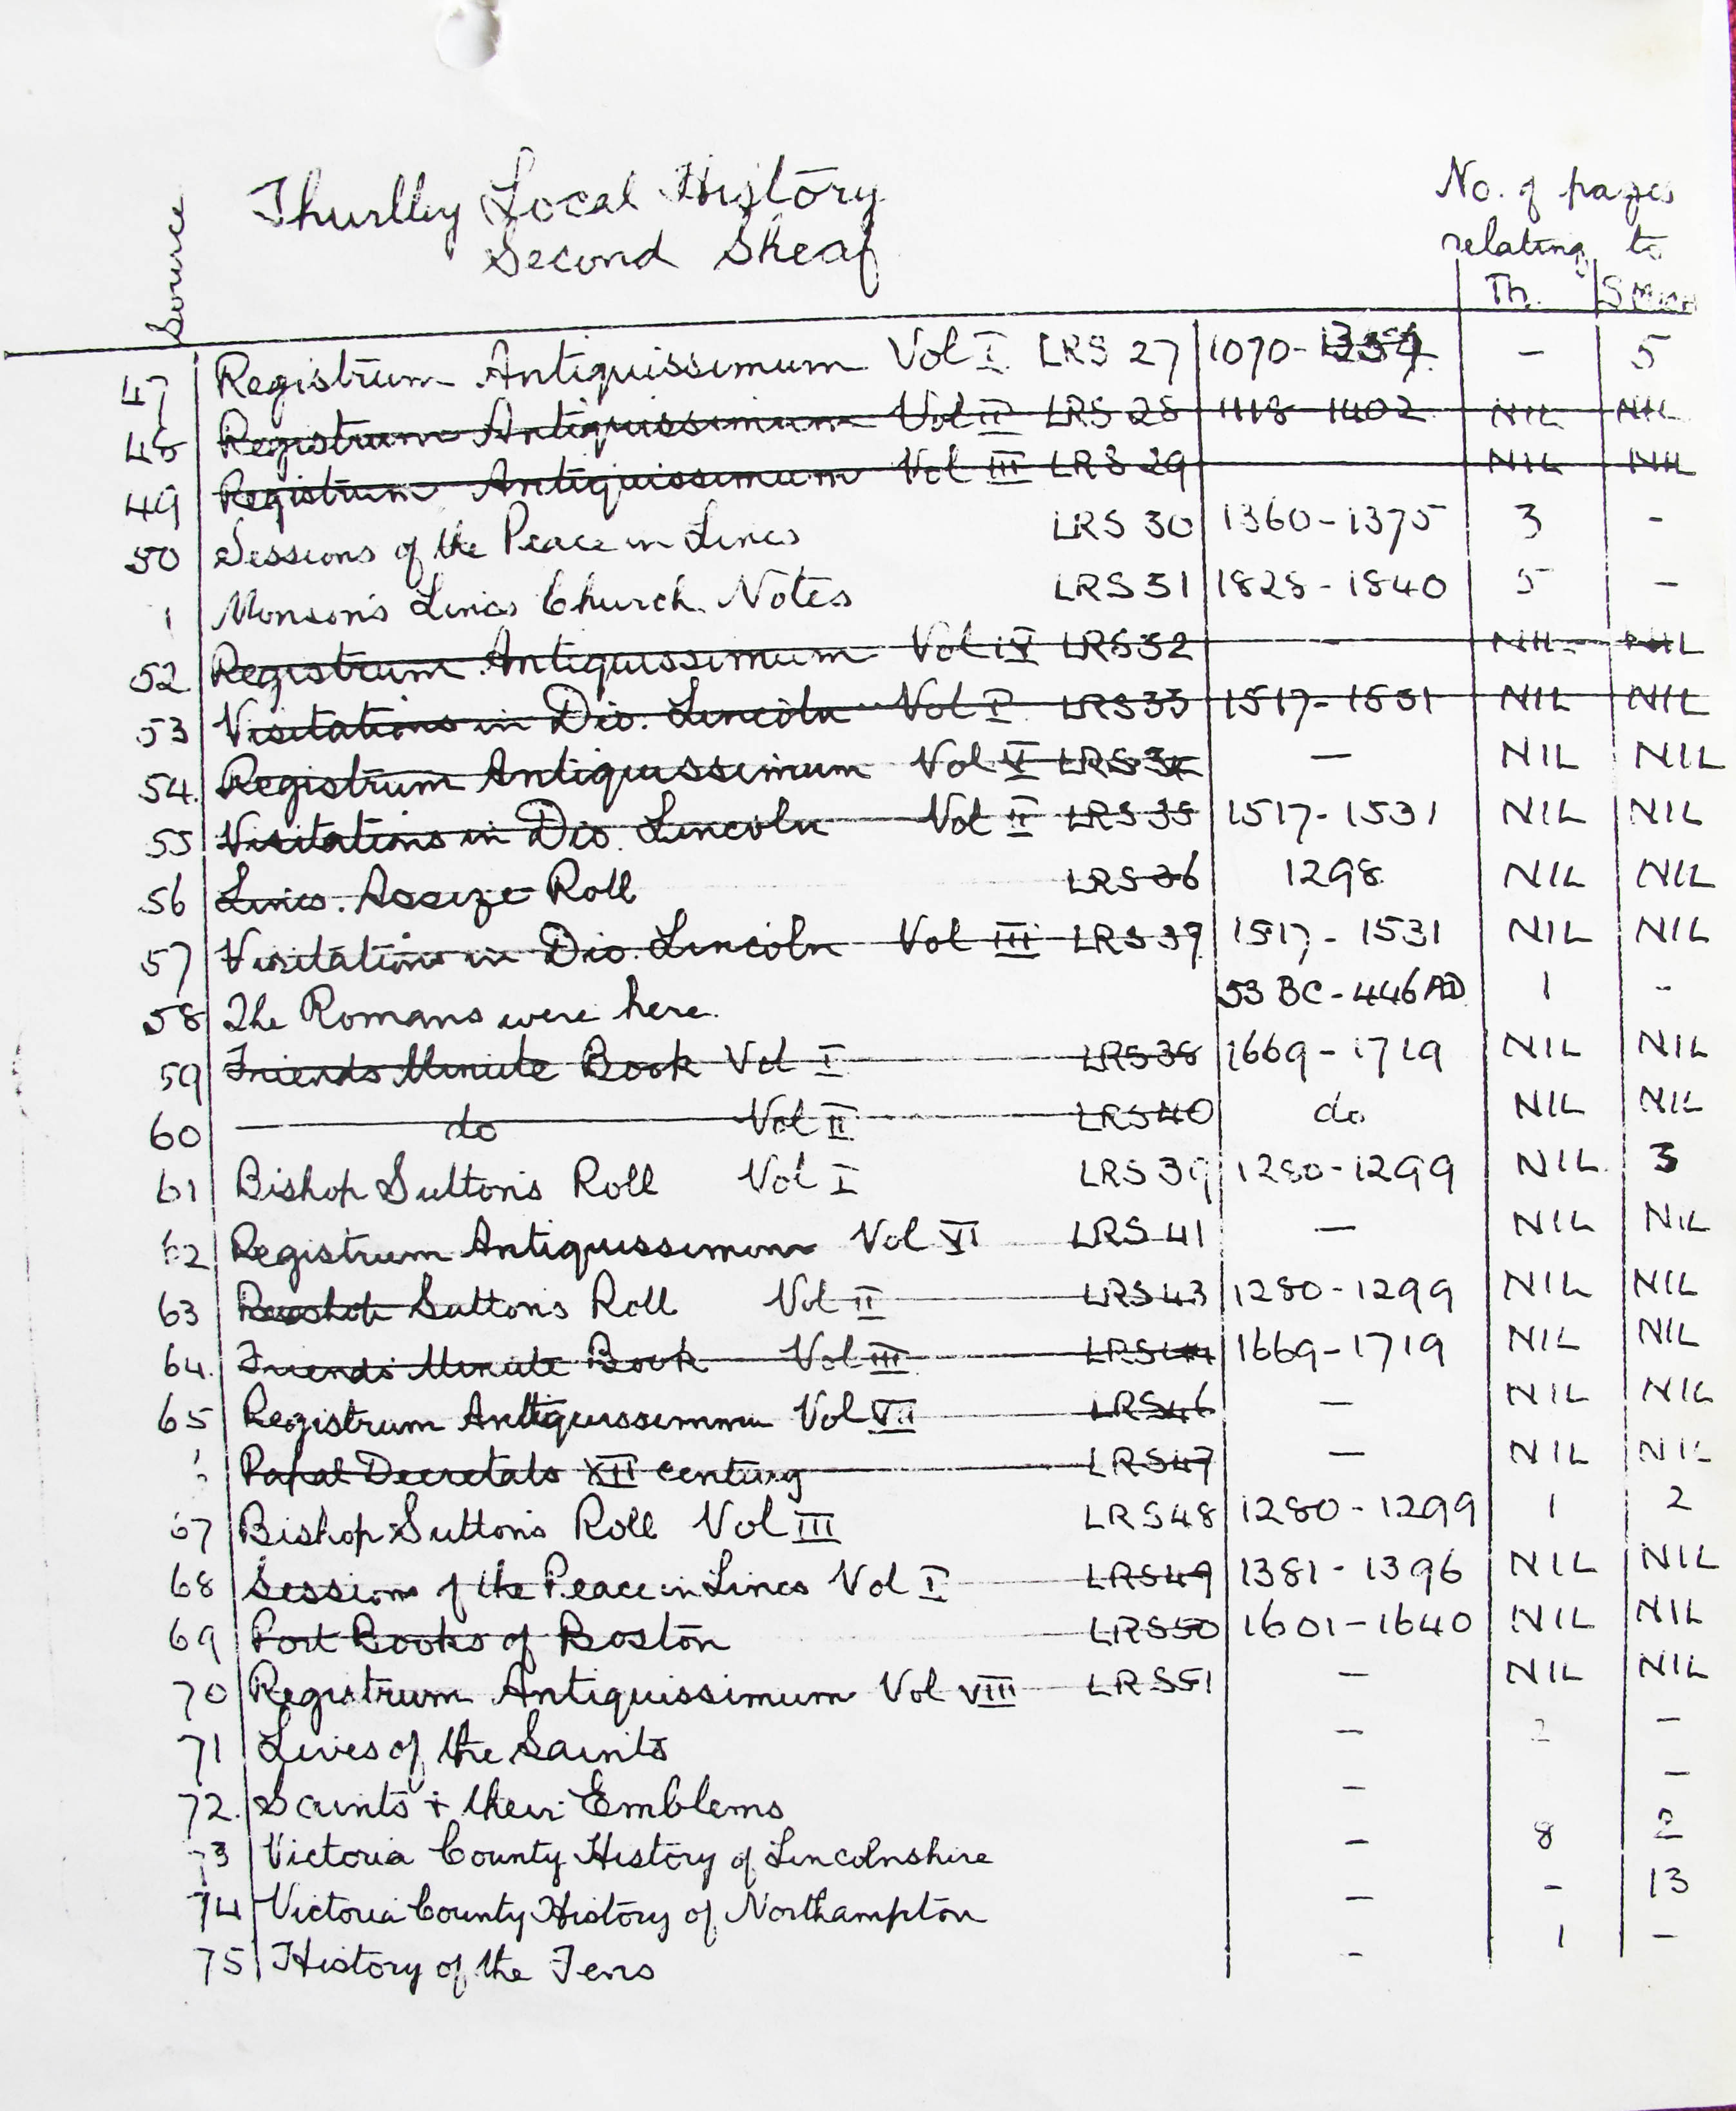 Source
Thurlby Local History
Second Sheaf
No. of pages
relating to
Th.
47 Registrum Antiquissimum Vol I LRS 27 1070- - 5
48 Registrum Antiquissimum Vol II LRS 28 1113-1402 NIL NIL
49 Registrum Antiquissimum Vol III LRS 29 NIL NIL
50 Sessions of the Peace in Lincs LRS 30 1360-1375 3 -
1 Monson's Lincs Church Notes LRS 31 1828-1840 5 -
52 Registrum Antiquissimum Vol IV LRS 32 - NIL NIL
53 Visitations in Dio. Lincoln Vol I LRS 33 1517-1531 NIL NIL
54. Registrum Antiquissimum Vol V LRS 34 - NIL NIL
55 Visitations in Dio. Lincoln Vol II LRS 35 1517-1531 NIL NIL
56 Lincs. Assize Roll LRS 36 1298 NIL NIL
57 Visitations in Dio. Lincoln Vol III LRS 37 1517-1531 NIL NIL
58 The Romans were here. 53 BC-446 AD 1 -
59 Friends Minute Book Vol I LRS 38 1669-1719 NIL NIL
60 do Vol II LRS 40 do NIL NIL
61 Bishop Sutton's Roll Vol I LRS 39 1280-1299 NIL 3
62 Registrum Antiquissimum Vol VI LRS 41 - NIL NIL
63 Bishop Sutton's Roll Vol II LRS 43 1280-1299 NIL NIL
64. Friends Minute Book Vol III LRS 44 1669-1719 NIL NIL
65 Registrum Antiquissimum Vol VII LRS 46 - NIL NIL
Papal Decretals XII century LRS 47 - NIL NIL
67 Bishop Sutton's Roll Vol III LRS 48 1280-1299 1 2
68 Sessions of the Peace in Lincs Vol I LRS 49 1381-1396 NIL NIL
69 Port Books of Boston LRS 50 1601-1640 NIL NIL
70 Registrum Antiquissimum Vol VIII LRS 51 - NIL NIL
71 Lives of the Saints - 2 -
72. Saints + their Emblems - -
73 Victoria County History of Lincolnshire - 8 2
74 Victoria County History of Northampton - - 13
75 History of the Fens - 1 -